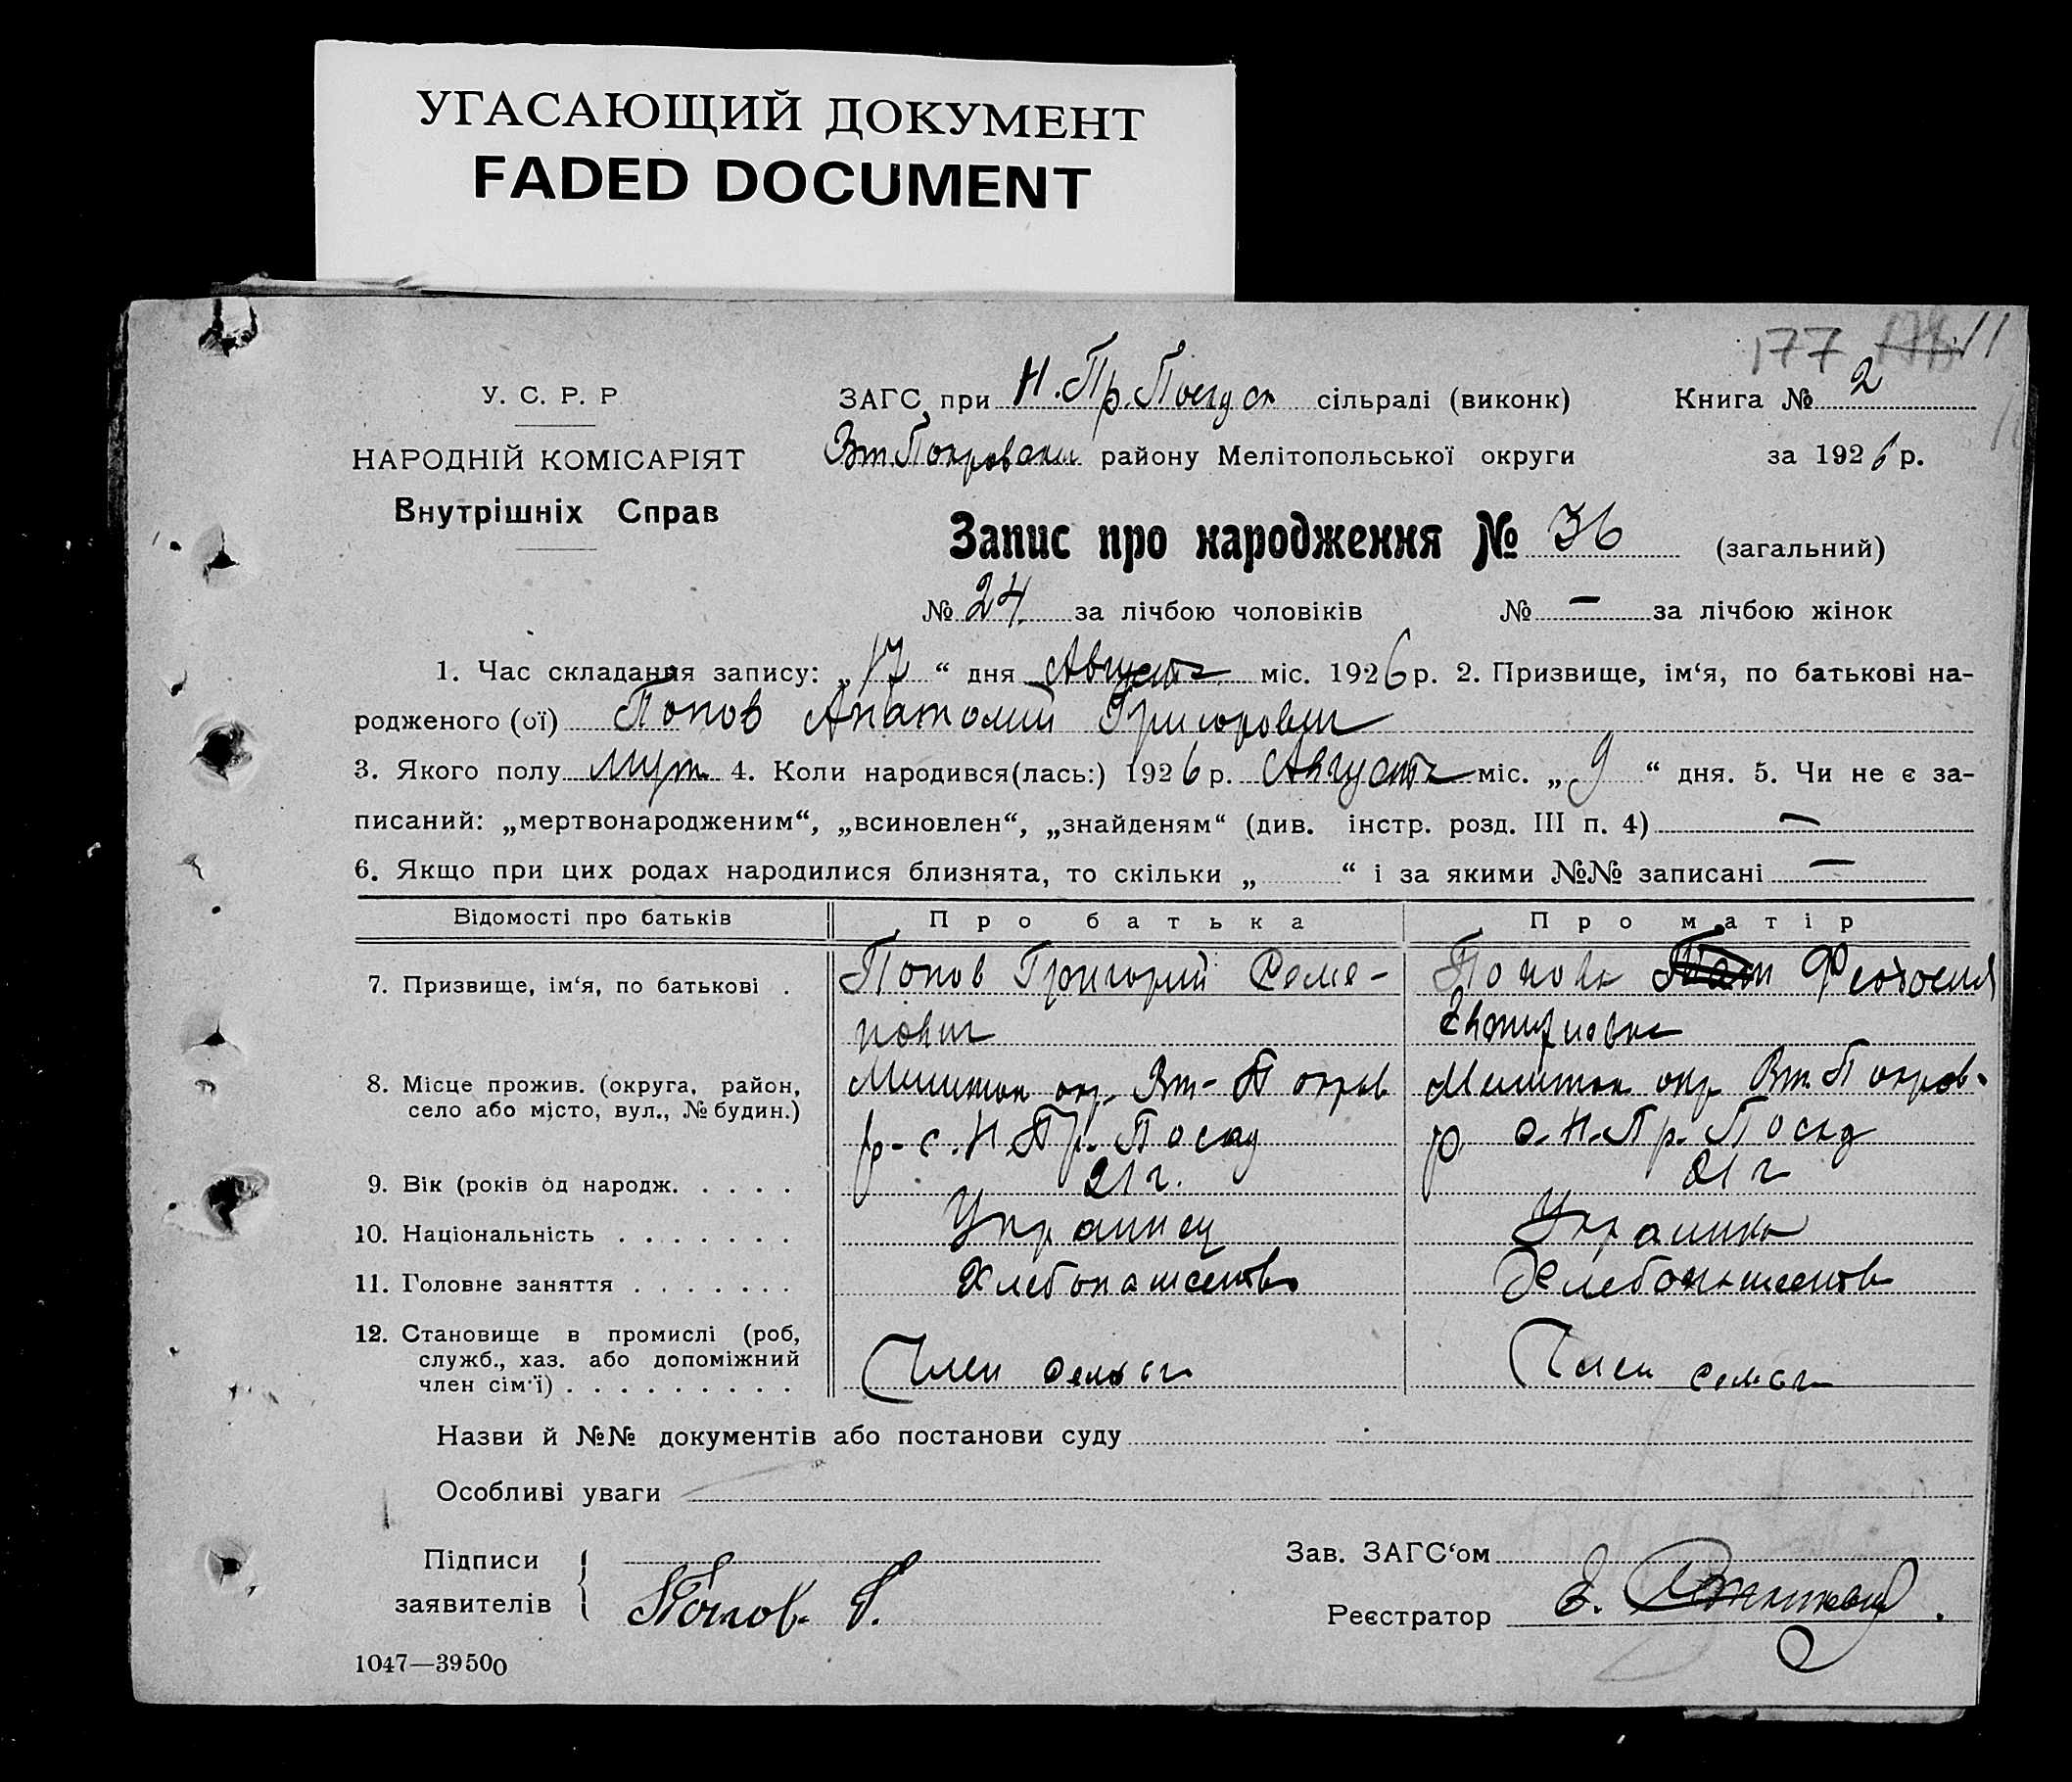 УГАСАЮЩИЙ ДОКУМЕНТ
FADED DOCUMENT
177 11
У. С. Р. Р
НАРОДНІЙ КОМІСАРІЯТ
Внутрішніх Справ
ЗАГС при Н. Пр. Посадск сільраді (виконк) Книга № 2
Вт Покровским району Мелітопольської округи за 1926 р.
Запис про народження № 36 (загальний)
№ 24 за лічбою чоловіків № — за лічбою жінок
1. Час складання запису: „17“ дня Августа міс. 1926 р. 2. Призвище, ім‘я, по батькові на-
родженого (ої) Попов Анатолий Григорович
3. Якого полу муж. 4. Коли народився(лась:) 1926 р. Августа міс. „9“ дня. 5. Чи не є за-
писаний: „мертвонародженим“, „всиновлен“, „знайденям“ (див. інстр. розд. III п. 4) —
6. Якщо при цих родах народилися близнята, то скільки „ “ і за якими №№ записані —
Відомості про батьків Про батька Про матір
7. Призвище, ім‘я, по батькові . Попов Григорий Семе- Попова Феодосия
нович
8. Місце прожив. (округа, район, Мелитоп окр. Вт-Покров Мелитоп окр Вт. Покров.
село або місто, вул., № будин.) р-с. Н Пр. Посад р с. Н. Пр. Посад
9. Вік (років од народж. . . . . 21 г. 21 г
10. Національність . . . . . . . Украинец Украинка
11. Головне заняття . . . . . . . Хлебопашество Хлебопашеств
12. Становище в промислі (роб,
служб., хаз. або допоміжний
член сім‘ї) . . . . . . . . . Член семьи Член семьи
Назви й №№ документів або постанови суду
Особливі уваги
Підписи
заявителів Попов. Г.
Зав. ЗАГС‘ом
Реєстратор Е.
1047—39500